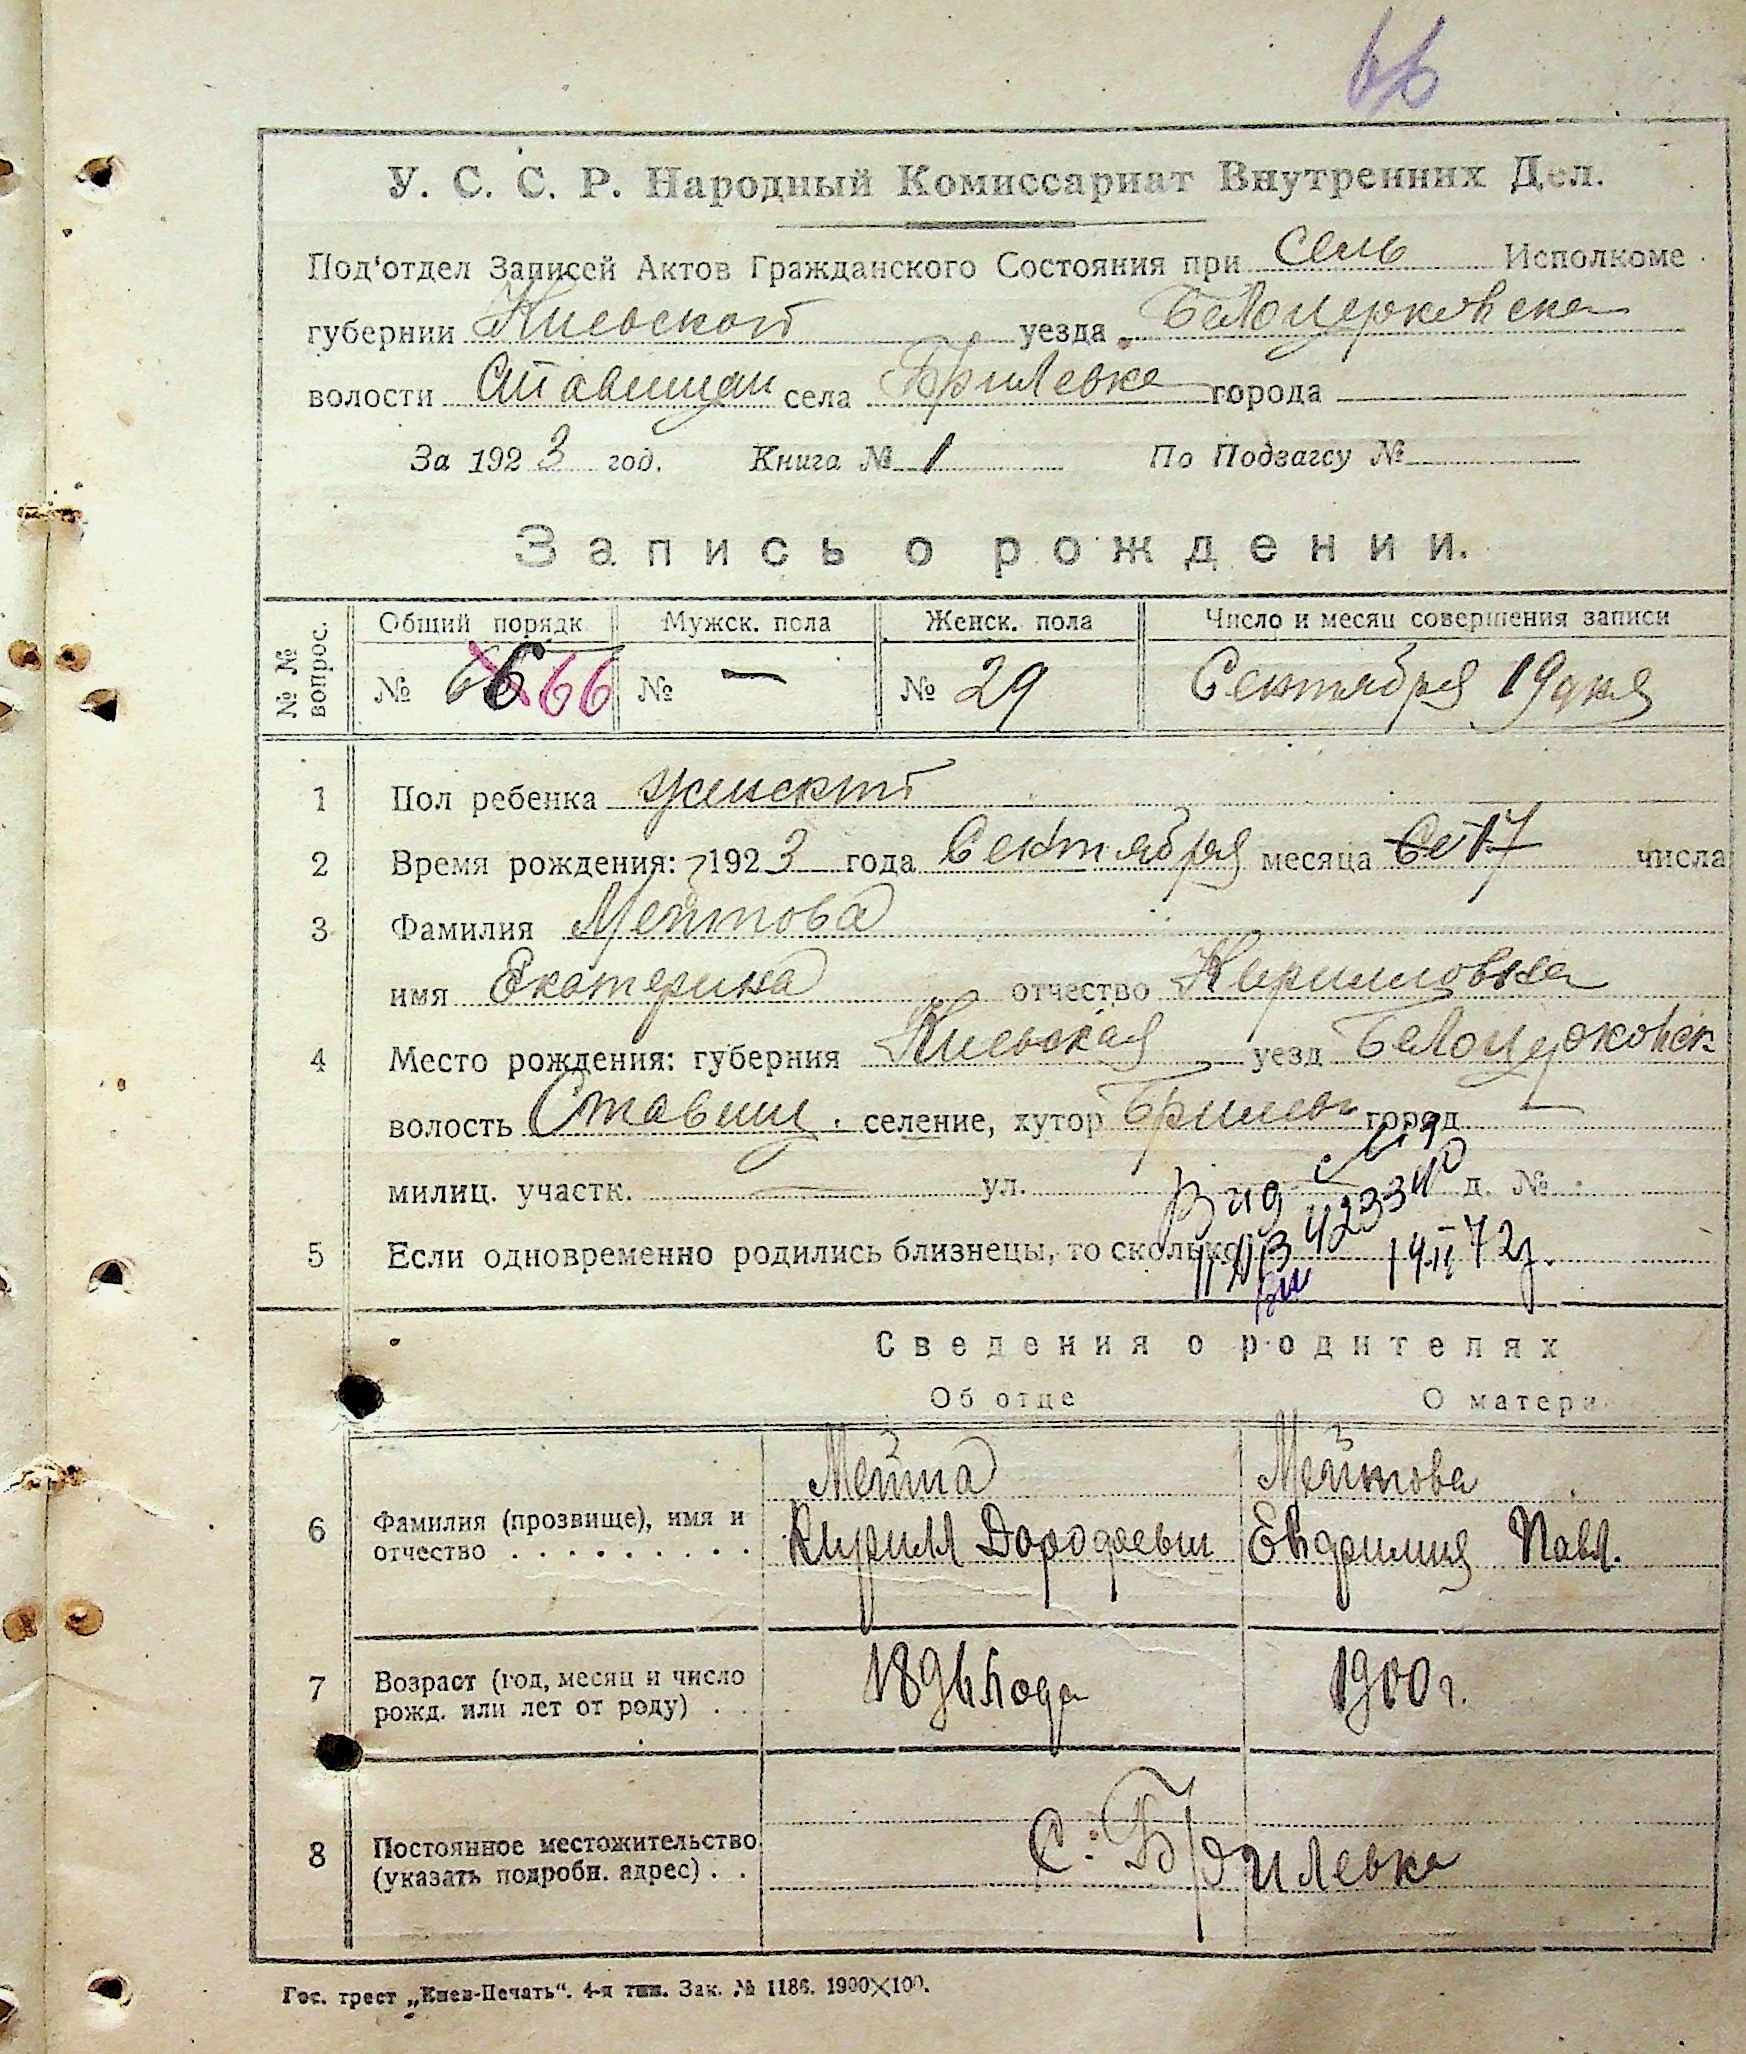 66
У. С. С. Р. Народный Комиссариат Внутренних Дел.
Под'отдел Записей Актов Гражданского Состояния при Сель Исполкоме
губернии Киевской уезда Белоцерковска
волости Ставищан села Брилевка города
За 1923 год. Книга № 1 По Подзагсу №
Запись о рождении.
№ № вопрос. Общий порядк Мужск. пола Женск. пола Число и месяц совершения записи
№ 66 66 № — № 29 Сентября 19 дня
1 Пол ребенка женский
2 Время рождения: 1923 года Сентября месяца Се 17 числа
3 Фамилия Мейтова
имя Екатерина отчество Кирилловна
4 Место рождения: губерния Киевская уезд Белоцерковск
волость Ставищ. селение, хутор Брилевк город —
милиц. участк. — ул. д. №
5 Если одновременно родились близнецы, то сколько
14.II 72г.
Сведения о родителях
Об отце О матери
Мейта Мейтова
6 Фамилия (прозвище), имя и отчество . . . . . . . . . Кирилл Дородоевич Евдокимия Павл.
7 Возраст (год, месяц и число рожд. или лет от роду) . . 1896 года 1900 г.
8 Постоянное местожительство (указать подробн. адрес) . . С. Брилевка
Гос. трест „Киев-Печать“. 4-я тип. Зак. № 1186. 1900×100.